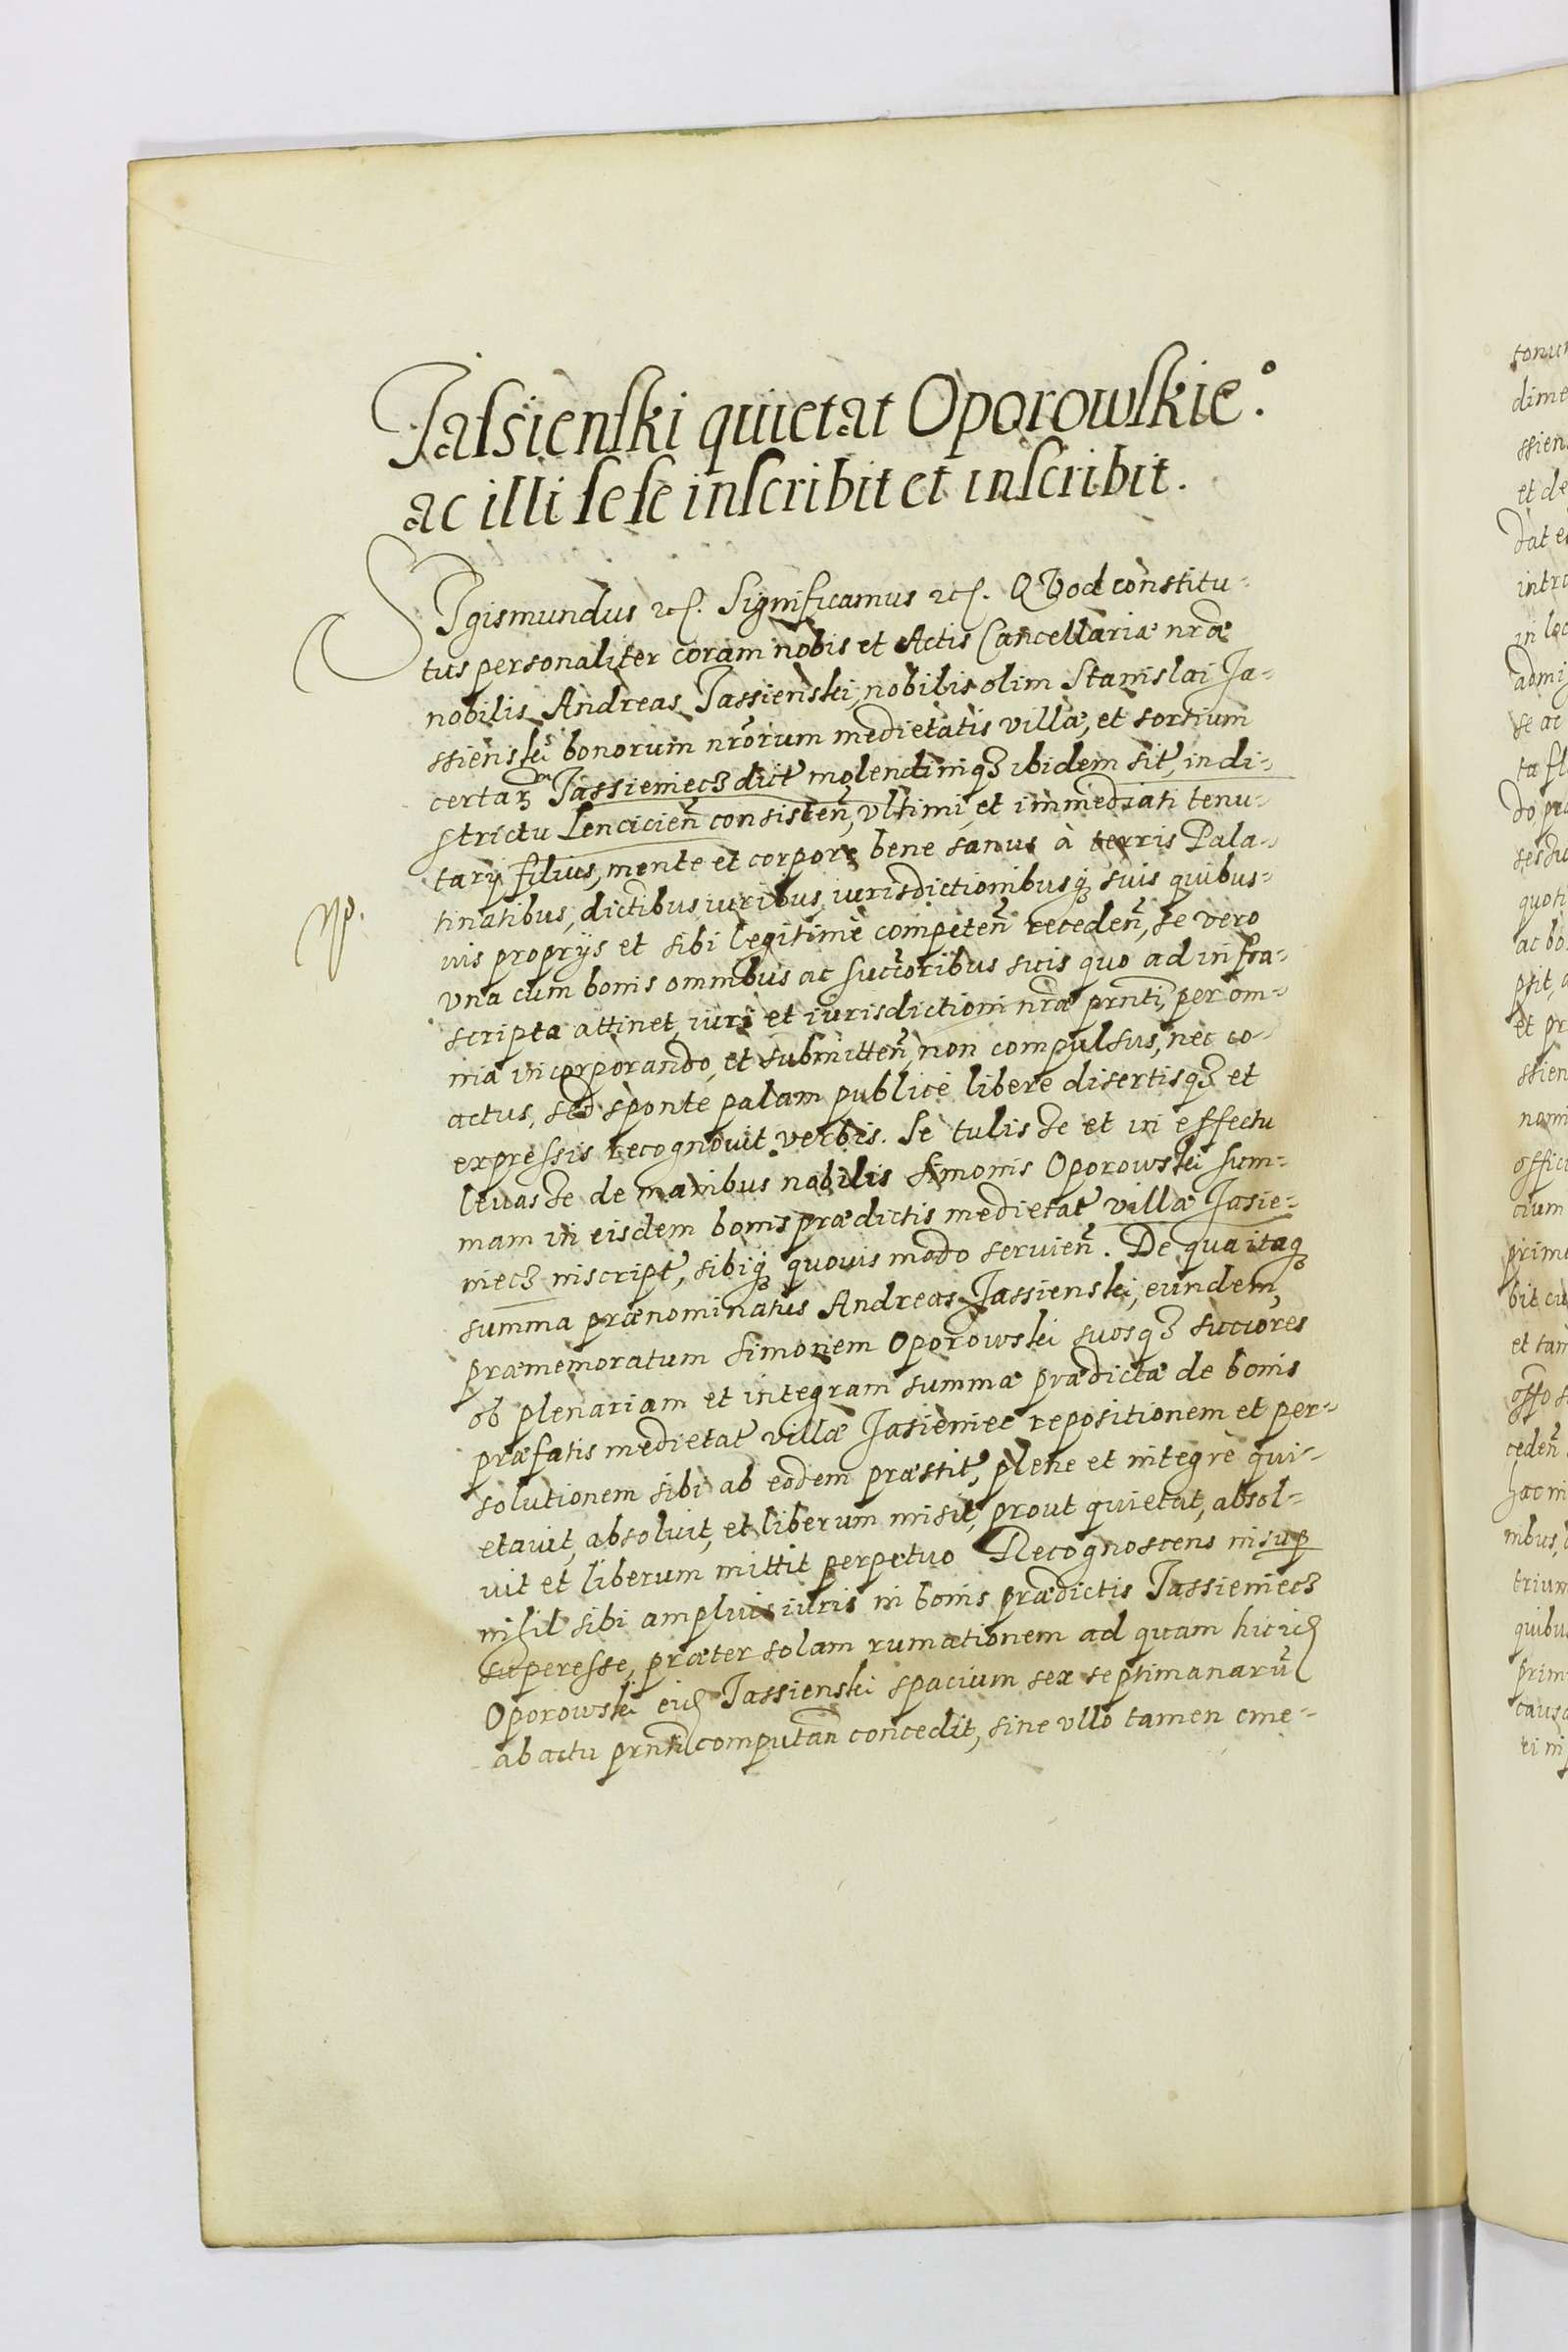 Jassienski quietat Oporowskie͛.
ac illi sese inscribit et inscribit.
SIgismundus ꝛc. Significamus ꝛc. QVod constitu-
tus personaliter coram nobis et Actis Cancellariæ nrӕ
nobilis Andreas Jassienski, nobilis olim Stanislai Ja-
ssienski bonorum nrorum medietatis villæ, et sortium
certaꝝ Jassieniecz dict molendiniqꝫ ibidem sit, in di-
strictu Lencicien̄ consisten̄, vltimi, et immediati tenu-
tarij filius, mente et corpore bene sanus à terris Pala-
tinatibus, dictibus iuribus iurisdictionibusqꝫ suis quibus-
vis proprijs et sibi legitimè competen̄ receden̄, se vero
vna cum bonis omnibus ac succoribus suis quo ad infra-
scripta attinet, iuri et iurisdictioni nrӕ prnti, per om-
nia incorporando, et submitten̄, non compulsus, nec co-
actus, sed sponte palam publicè libere disertisqꝫ et
expressis recognouit verbis. Se tulisse et in effectu
leuasse de manibus nobilis Simonis Oporowski sum-
mam in eisdem bonis prædictis medietat villæ Jasie-
niecz inscript, sibiqꝫ quouis modo seruien̄. De qua itaqꝫ
summa prænominatus Andreas Jassienski, eundem
præmemoratum Simonem Oporowski suosqꝫ succores
ob plenariam et integram summæ prædictæ de bonis
præfatis medietat villæ Jasieniec repositionem et per-
solutionem sibi ab eodem præstit, plene et integrè qui-
etauit, absoluit, et liberum misit, prout quietat, absol-
uit et liberum mittit perpetuo Recognoscens insup
nihil sibi amplius iuris in bonis prædictis Jassieniecz
superesse, præter solam rumationem ad quam hic id
Oporowski eid Jassienski spacium sex septimanarū
ab actu prnti computan̄ concedit, sine vllo tamen eme-